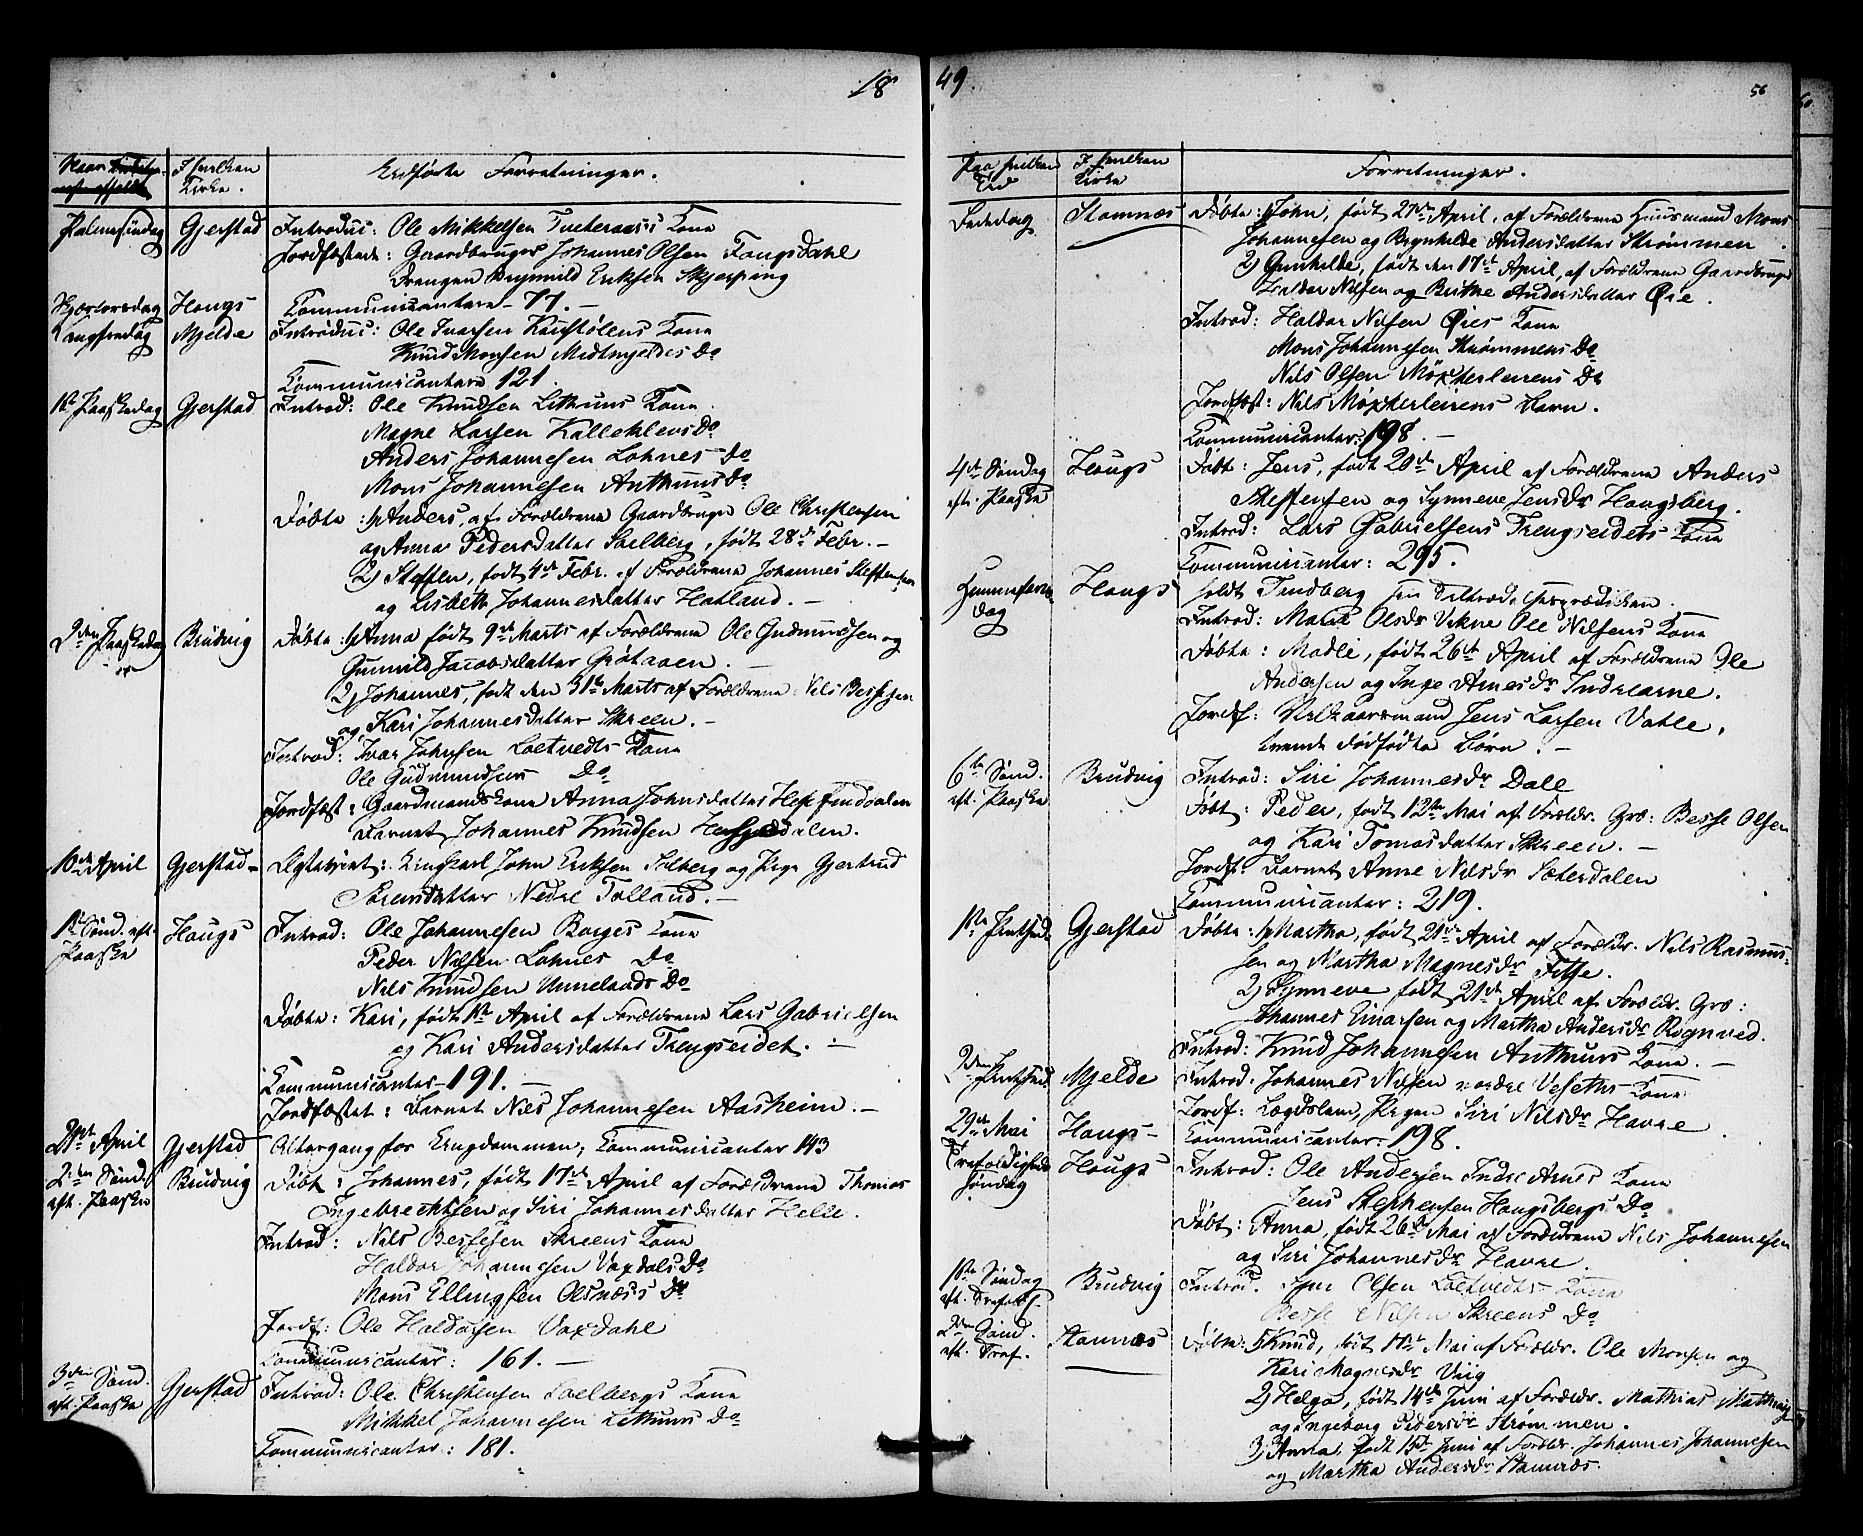 18
Naar
I hvilken Kirke.
Udførte Forretninger.
Palmesøndag Gjerstad Introduc: Ole Mikkelsen Kone
Jordfæstede: Gaardbruger Johannes Olsen Fougsdahl
Drengen Brynnild Eriksen Skjerping
Skjærtorsdag Hougs Communicantere 77.
Langfredag Mjelde Introduc: Ole Ivarsen Kone
Knud Monsen Midtmjeldes Do
Communicantere 121.
1ste Paaskedag Gjerstad Introd: Ole Knudsen Lethuns Kone
Magne Larsen Kalleklevs Do
Anders Johannesen Lohnes Do
Mons Johannesen Anthuns Do
Døbte: 1) Anders, af Forældrene Gaardbruger Ole Christensen
og Anna Pedersdatter Soelberg, født 28de Febr. –
2) Steffen, født 4de Febr. af Forældrene Johannes Steffensen
og Lisbeth Johannesdatter Hatland. –
2den Paaskedag Brudvig Døbte: 1) Anna født 9de Marts af Forældrene Ole Gudmundsen og
Gunnild Jacobsdatter Grøtaaen. –
2) Johannes, født den 31te Marts af Forældrene Nils Bessesen
og Kari Johannesdatter Skreen. –
Introd: Ivar Johnsen Loetvedts Kone
Ole Gudmundsens Do
Jordfæst: Gaardmandskone Anna Johnsdatter Hesjedalen
Barnet Johannes Knudsen Hesjedalen.
10de April Gjerstad – Ægteviet: Ungkarl John Eriksen Solberg og Pige Gjertrud
Sørensdatter Nedre Tolland. –
1ste Sønd. eft. Paaske Hougs Introd: Ole Johannesen Borges Kone
Peder Nilsen Lohnes Do
Nils Knudsen Unnelands Do
Døbte: Kari, født 1ste April af Forældrene Lars Gabrielsen
og Kari Andersdatter Trengereidet. –
Communicanter 191. –
Jordfæstet: Barnet Nils Johannesen Aasheim. –
21de April Gjerstad Altergang for Ungdommen; Communicanter 143
2den Sønd. eft. Paaske Brudvig Døbt: Johannes, født 17de April af Forældrene Thomas
Ingebrechtsen og Siri Johannesdatter Helle.
Introd: Nils Bessesen Skreens Kone
Haldor Johannesen Vaxdals Do
Mons Ellingsen Olsnæss Do
Jordf: Ole Haldorsen Vaxdahl
Communicanter: 161. –
3die Sønd. eft. Paaske Gjerstad Introd: Ole Christensen Soelbergs Kone
Mikkel Johannesen Lethuns Do
Communicanter: 181.
49.
56
Paa hvilken Tid
I hvilken Kirke
Forretninger.
Bededag Stamnæs Døbte: 1) John, født 27de April, af Forældrene Huusmand Mons
Johannesen og Brynhilde Andersdatter Strømmen.
2) Gunhilde, født den 17de April, af Forældrene Gaardbruger
Haldor Nilsen og Brithe Andersdatter Øie.
Introd: Haldor Nilsen Øies Kone
Mons Johannesen Strømmens Do
Nils Olsen Møxterleirens Do
Jordfæst: Nils Møxterleirens Barn.
Communicanter: 198. –
4de Søndag eft. Paaske Hougs Døbt: Jens, født 20de April af Forældrene Anders
Steffensen og Synneve Jensdr Hougsberg.
Introd: Lars Gabrielsens Trengereidets Kone
Communicanter: 295.
Himmelfarts dag Hougs holdt Tindberg sin
Introd: Marie Olsdr Vikne Ole Nilsens Kone
Døbte: Madli, født 26de April af Forældrene Ole
Andersen og Inge Arnesdr Indrearne.
Jordf: Jens Larsen Vatle,
Børn. –
6te Sønd. eft. Paaske Brudvig Introd: Siri Johannesdr Dale
Døbt: Peder, født 12te Mai af Forældr. Grø: Besse Olsen
og Kari Tomasdatter Skreen. –
Jordf: Barnet Anne Nilsdr Sæterdalen
Communicanter: 219.
1ste Pintsed. Gjerstad Døbte: 1) Martha, født 21de April af Forældr. Nils Rasmus-
sen og Martha Magnesdr Titje.
2) Synneve født 21de April af Forældr. Grø:
Johannes Einarsen og Martha Andersdr Rognved.
Introd: Knud Johannesen Anthuns Kone. –
2den Pintsed. Mjelde Introd: Johannes Nilsen nordre Veseths Kone
Jordf: Lægdslem, Pigen Siri Nilsdr Havre.
29de Mai Hougs – Communicanter: 198.
Trefoldigheds Søndag Hougs Introd: Ole Andersen Indre Arnes Kone
Jens Stephensen Hougsbergs Do
Døbt: Anna, født 26de Mai af Forældrene Nils Johannesen
og Siri Johannesdr Havre.
1ste Søndag eft. Trefold. Brudvig Introd. Olsen Loetvedts Kone
Besse Nilsen Skreens Do
2den Sønd. eft. Tref. Stamnæs Døbte: 1) Knud, født 11te Mai af Forældr. Ole Monsen og
Kari Magnesdr Viig
2) Helga, født 14de Juni af Forældr. Mathias
og Ingeborg Pedersdr Strømmen.
3) Anna, født 15de Juni af Forældr. Johannes Johannesen
og Martha Andersdr Stamnæs.